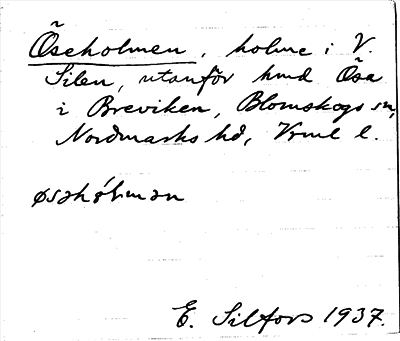 Öseholmen, holme i V.
Silen, utanför hmd Ösa
i Breviken, Blomskogs sn,
Nordmarks hd, Vrml l.
øsəhɷ́lmən
E. Silfors 1937.